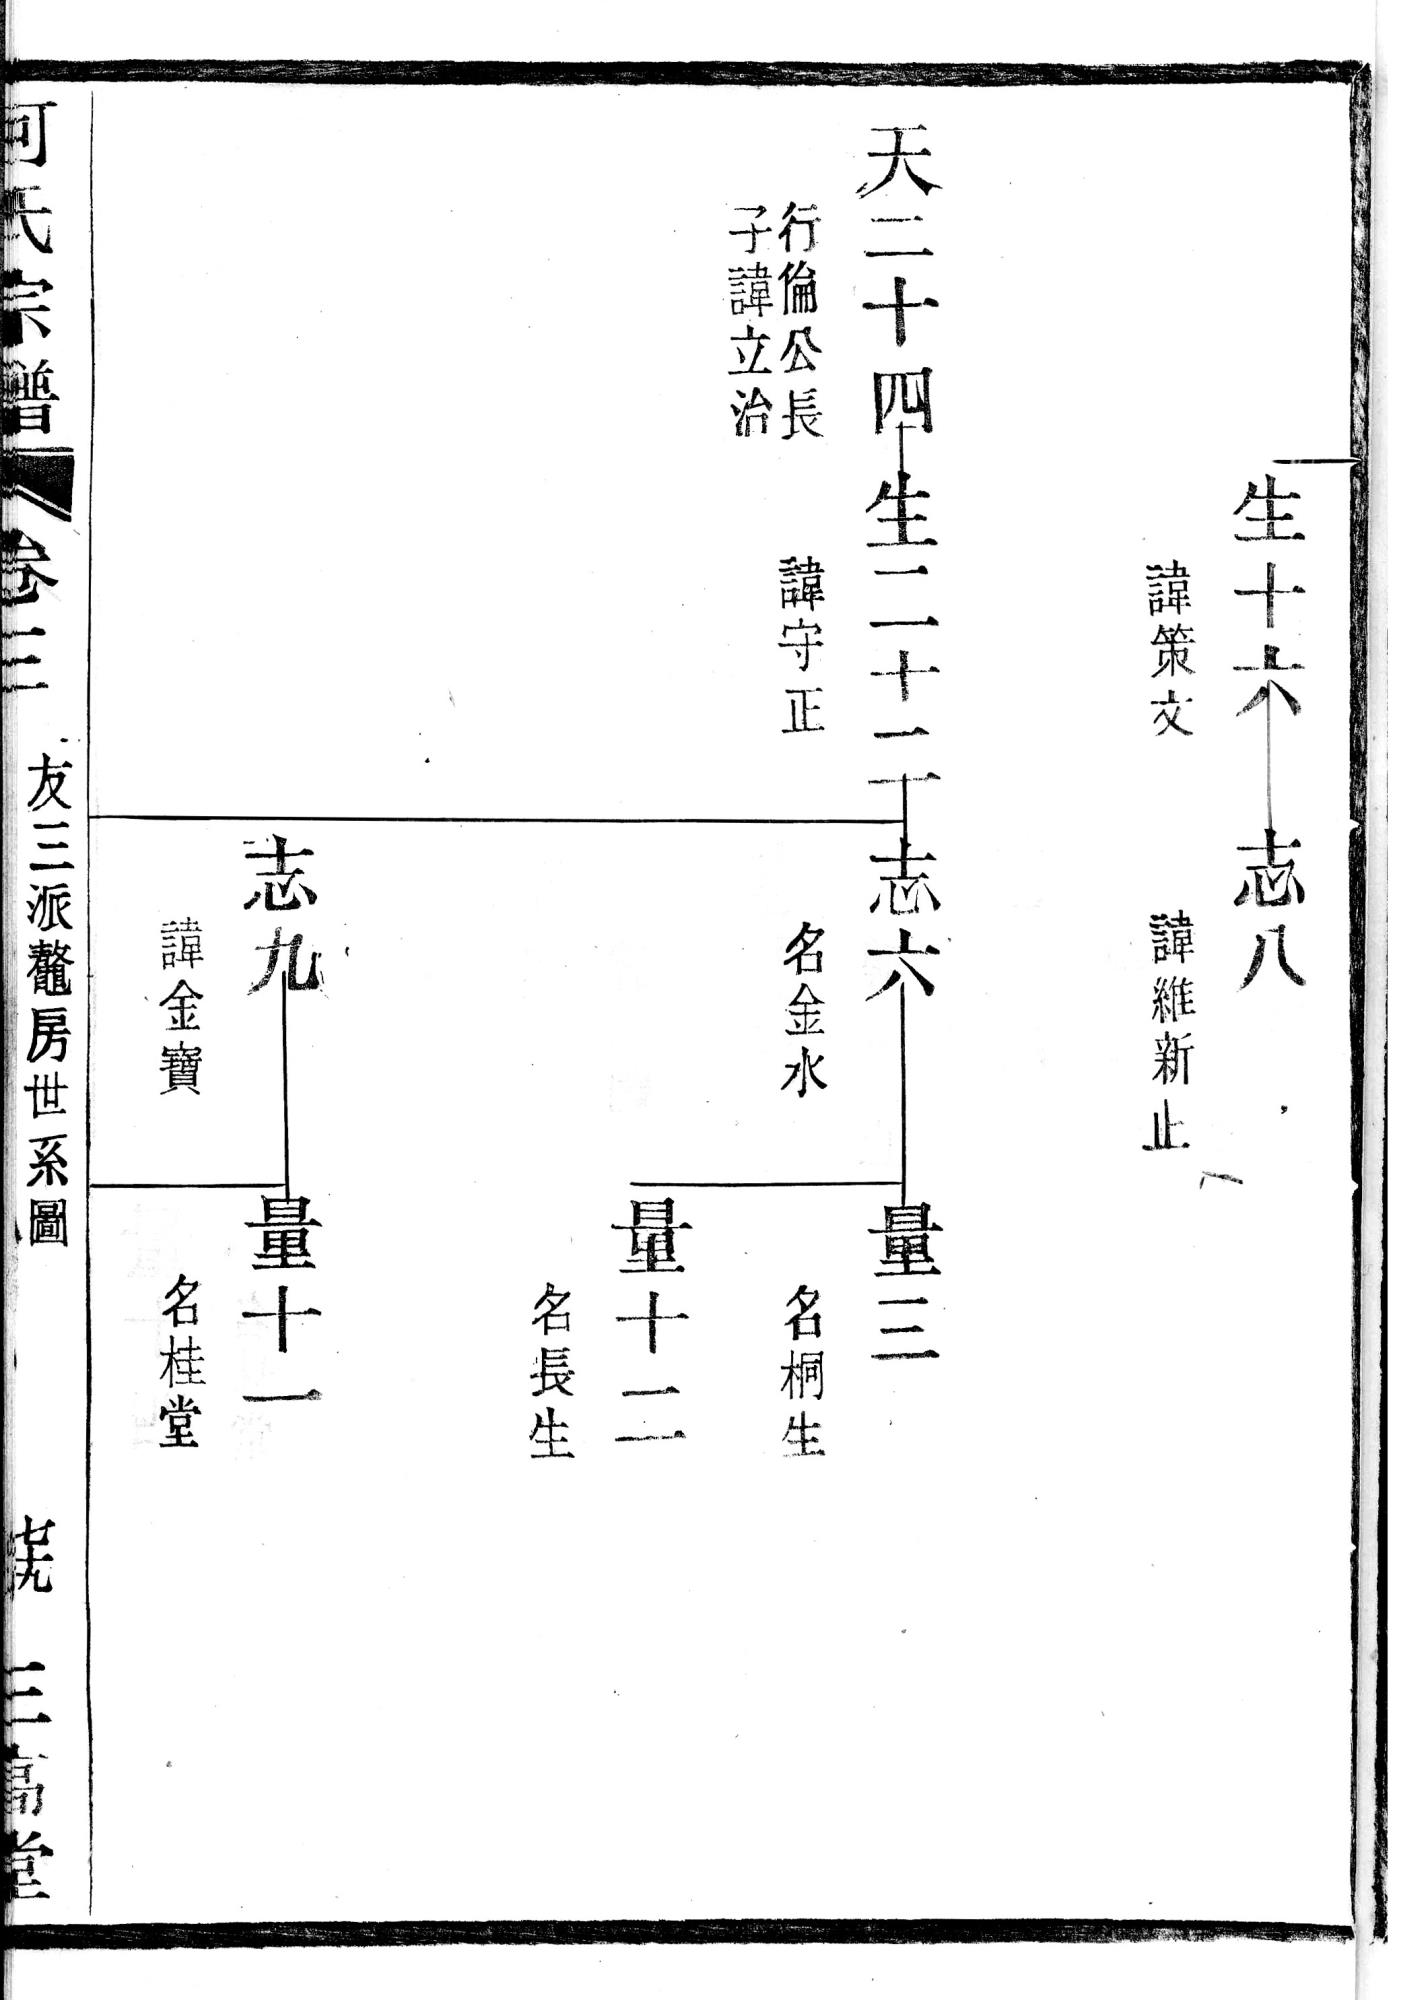 生十六
諱策文
志八
諱維新止
天二十四
行倫公長
子諱立治
生二十二
諱守正
志六
名金水
量三
名桐生
量十二
名長生
志九
諱金寶
量十一
名桂堂
何氏宗譜
卷三
友三派鰲房世系圖
三高堂